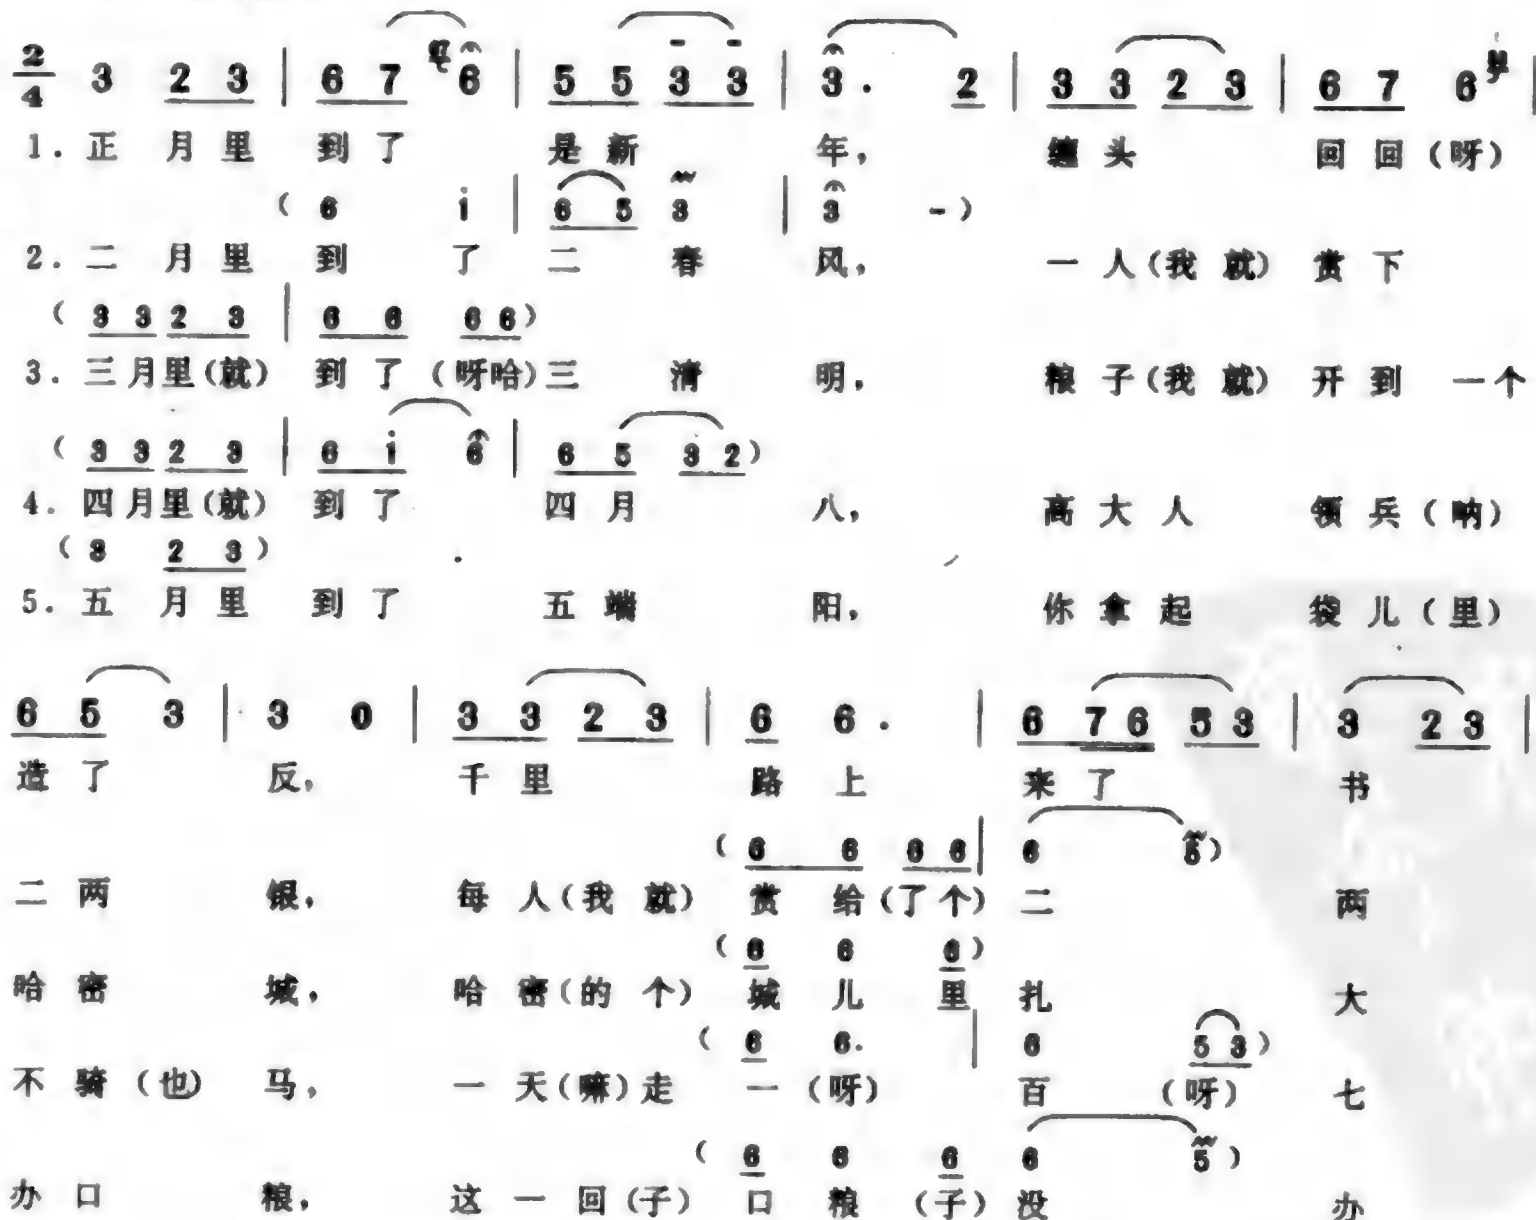 2/4 3 2 3 | 6 7 6 | 5 5 3 3 | 3 . 2 | 3 3 2 3 | 6 7 6 |
1. 正 月 里 到 了 是 新 年， 缠 头 回 回（呀）
（ 6 i | 6 5 3 | 3 - ）
2. 二 月 里 到 了 二 春 风， 一 人（我 就） 赏 下
（ 3 3 2 3 | 6 6 6 6 ）
3. 三 月 里（就） 到 了（呀哈）三 清 明， 粮 子（我 就） 开 到 一 个
（ 3 3 2 3 | 6 i 6 | 6 5 3 2 ）
4. 四 月 里（就） 到 了 四 月 八， 高 大 人 领 兵（呐）
（ 3 2 3 ）
5. 五 月 里 到 了 五 端 阳， 你 拿 起 袋 儿（里）
6 5 3 | 3 0 | 3 3 2 3 | 6 6 . | 6 7 6 5 3 | 3 2 3 |
造 了 反， 千 里 路 上 来 了 书
（ 6 6 6 6 | 6 5 ）
二 两 银， 每 人（我 就） 赏 给（了 个） 二 两
（ 6 6 6 ）
哈 密 城， 哈 密（的 个） 城 儿 里 扎 大
（ 6 6. | 6 5 3 ）
不 骑（也） 马， 一 天（嘛）走 一（呀） 百（呀） 七
（ 6 6 6 6 5 ）
办 口 粮， 这 一 回（子） 口 粮（子）没 办